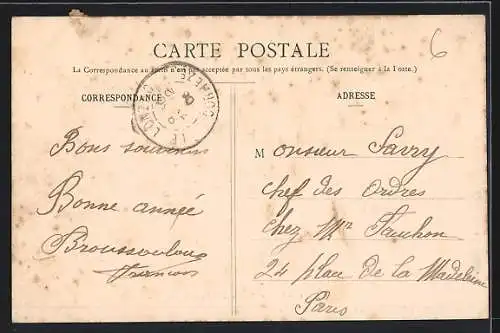 6
CARTE POSTALE
La Correspondance au recto n'est pas acceptée par tous les pays étrangers. (Se renseigner à la Poste.)
CORRESPONDANCE
ADRESSE
Bons souvenirs
Bonne année
Monsieur Savry
chef des Ordres
chez Mr Fauchon
24 place de la Madeleine
Paris